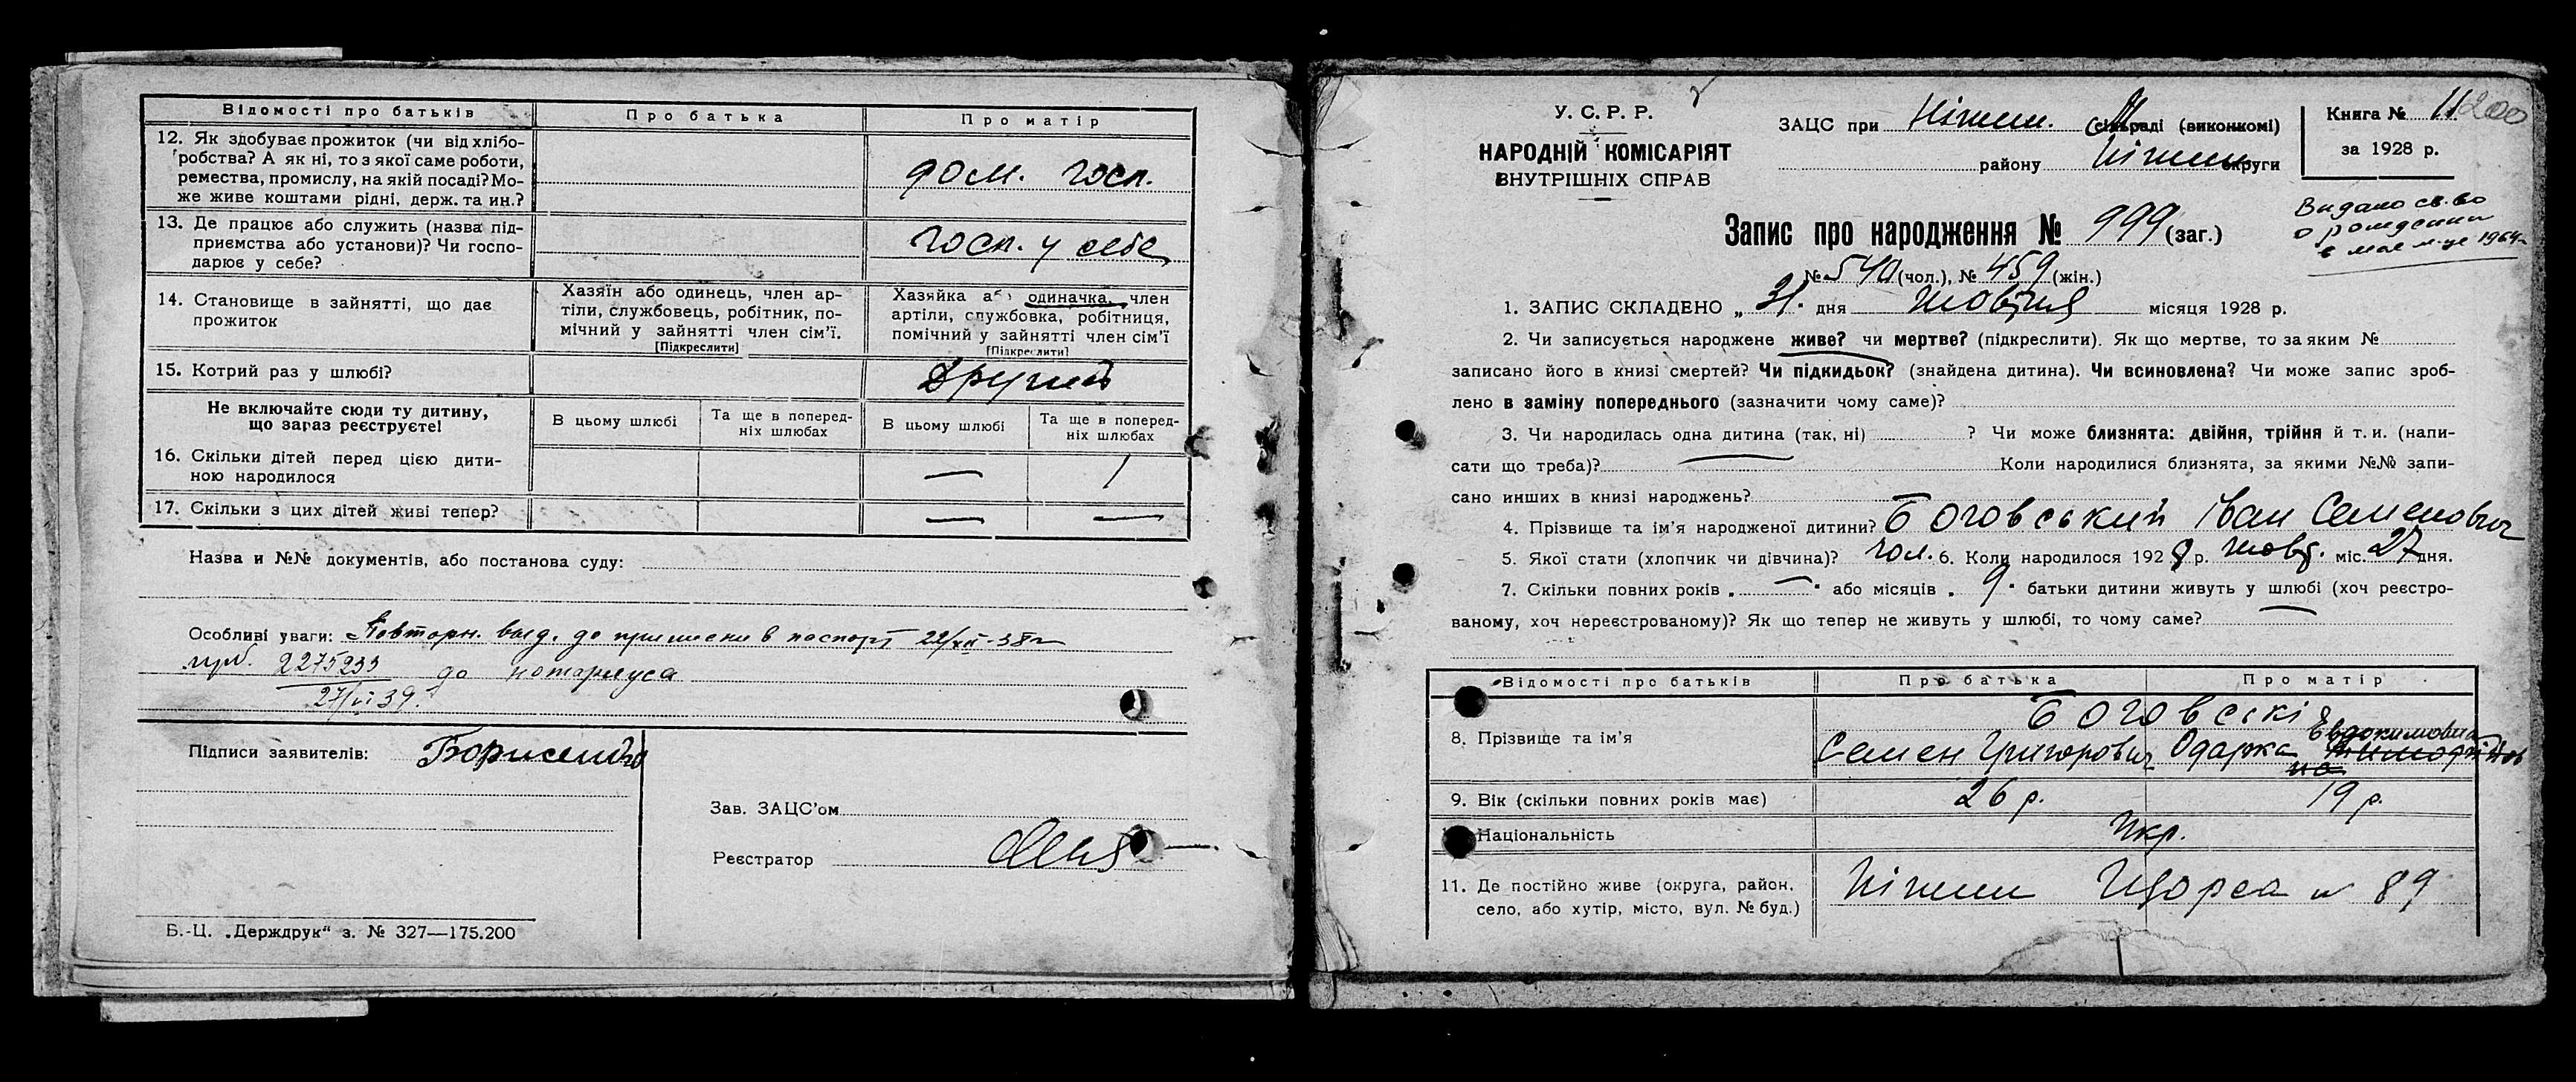 Відомості про батьків
Про батька
Про матір
12. Як здобуває прожиток (чи від хлібо-
робства? А як ні, то з якої саме роботи,
ремества, промислу, на якій посаді? Мо-
же живе коштами рідні, держ. та ин.?
дом. госп.
13. Де працює або служить (назва під-
приємства або установи)? Чи госпо-
дарює у себе?
госп. у себе
14. Становище в зайнятті, що дає
прожиток
Хазяїн або одинець, член ар-
тіли, службовець, робітник, по-
мічний у зайнятті член сім'ї.
[Підкреслити]
Хазяйка або одиначка, член
артіли, службовка, робітниця,
помічний у зайнятті член сім'ї
[Підкреслити]
15. Котрий раз у шлюбі?
Другий
Не включайте сюди ту дитину,
що зараз реєструєте!
В цьому шлюбі
Та ще в поперед-
ніх шлюбах
В цьому шлюбі
Та ще в поперед-
ніх шлюбах
16. Скільки дітей перед цією дити-
ною народилося
— 1
17. Скільки з цих дітей живі тепер?
— —
Назва и №№ документів, або постанова суду:
Особливі уваги: Повторн. выд. до приписки в паспорт 22/XII-38г
2275233 до нотариуса
27/VI 39.
Підписи заявителів: Борисенко
Зав. ЗАЦС'ом
Реєстратор
Б.-Ц. „Держдрук“ з. № 327—175.200
У. С. Р. Р.
НАРОДНІЙ КОМІСАРІЯТ
ВНУТРІШНІХ СПРАВ
ЗАЦС при Ніжин. сільраді (виконкомі)
району Ніжин округи
Книга № 11 200
за 1928 р.
Видано св-во
о рождении
в мае м-це 1964г
Запис про народження № 999 (заг.)
№ 540 (чол.), № 459 (жін.)
1. ЗАПИС СКЛАДЕНО „ 31 · дня Жовтня місяця 1928 р.
2. Чи записується народжене живе? чи мертве? (підкреслити). Як що мертве, то за яким №
записано його в книзі смертей? Чи підкидьок? (знайдена дитина). Чи всиновлена? Чи може запис зроб-
лено в заміну попереднього (зазначити чому саме)?
3. Чи народилась одна дитина (так, ні) ? Чи може близнята: двійня, трійня й т. и. (напи-
сати що треба)? Коли народилися близнята, за якими №№ запи-
сано инших в книзі народжень?
4. Прізвище та ім'я народженої дитини? Боговський Іван Семенович
5. Якої стати (хлопчик чи дівчина)? чол. 6. Коли народилося 1928 р. жовт. міс. 27 дня.
7. Скільки повних років „ — “ або місяців „ 9 “ батьки дитини живуть у шлюбі (хоч реєстро-
ваному, хоч нереєстрованому)? Як що тепер не живуть у шлюбі, то чому саме? —
Відомості про батьків
Про батька
Про матір
8. Прізвище та ім'я
Боговські
Семен Григорович
Одарка Евдокимовна
9. Вік (скільки повних років має)
26 р.
19 р.
Національність
Укр.
11. Де постійно живе (округа, район,
село, або хутір, місто, вул. № буд.)
Ніжин Щорса № 89